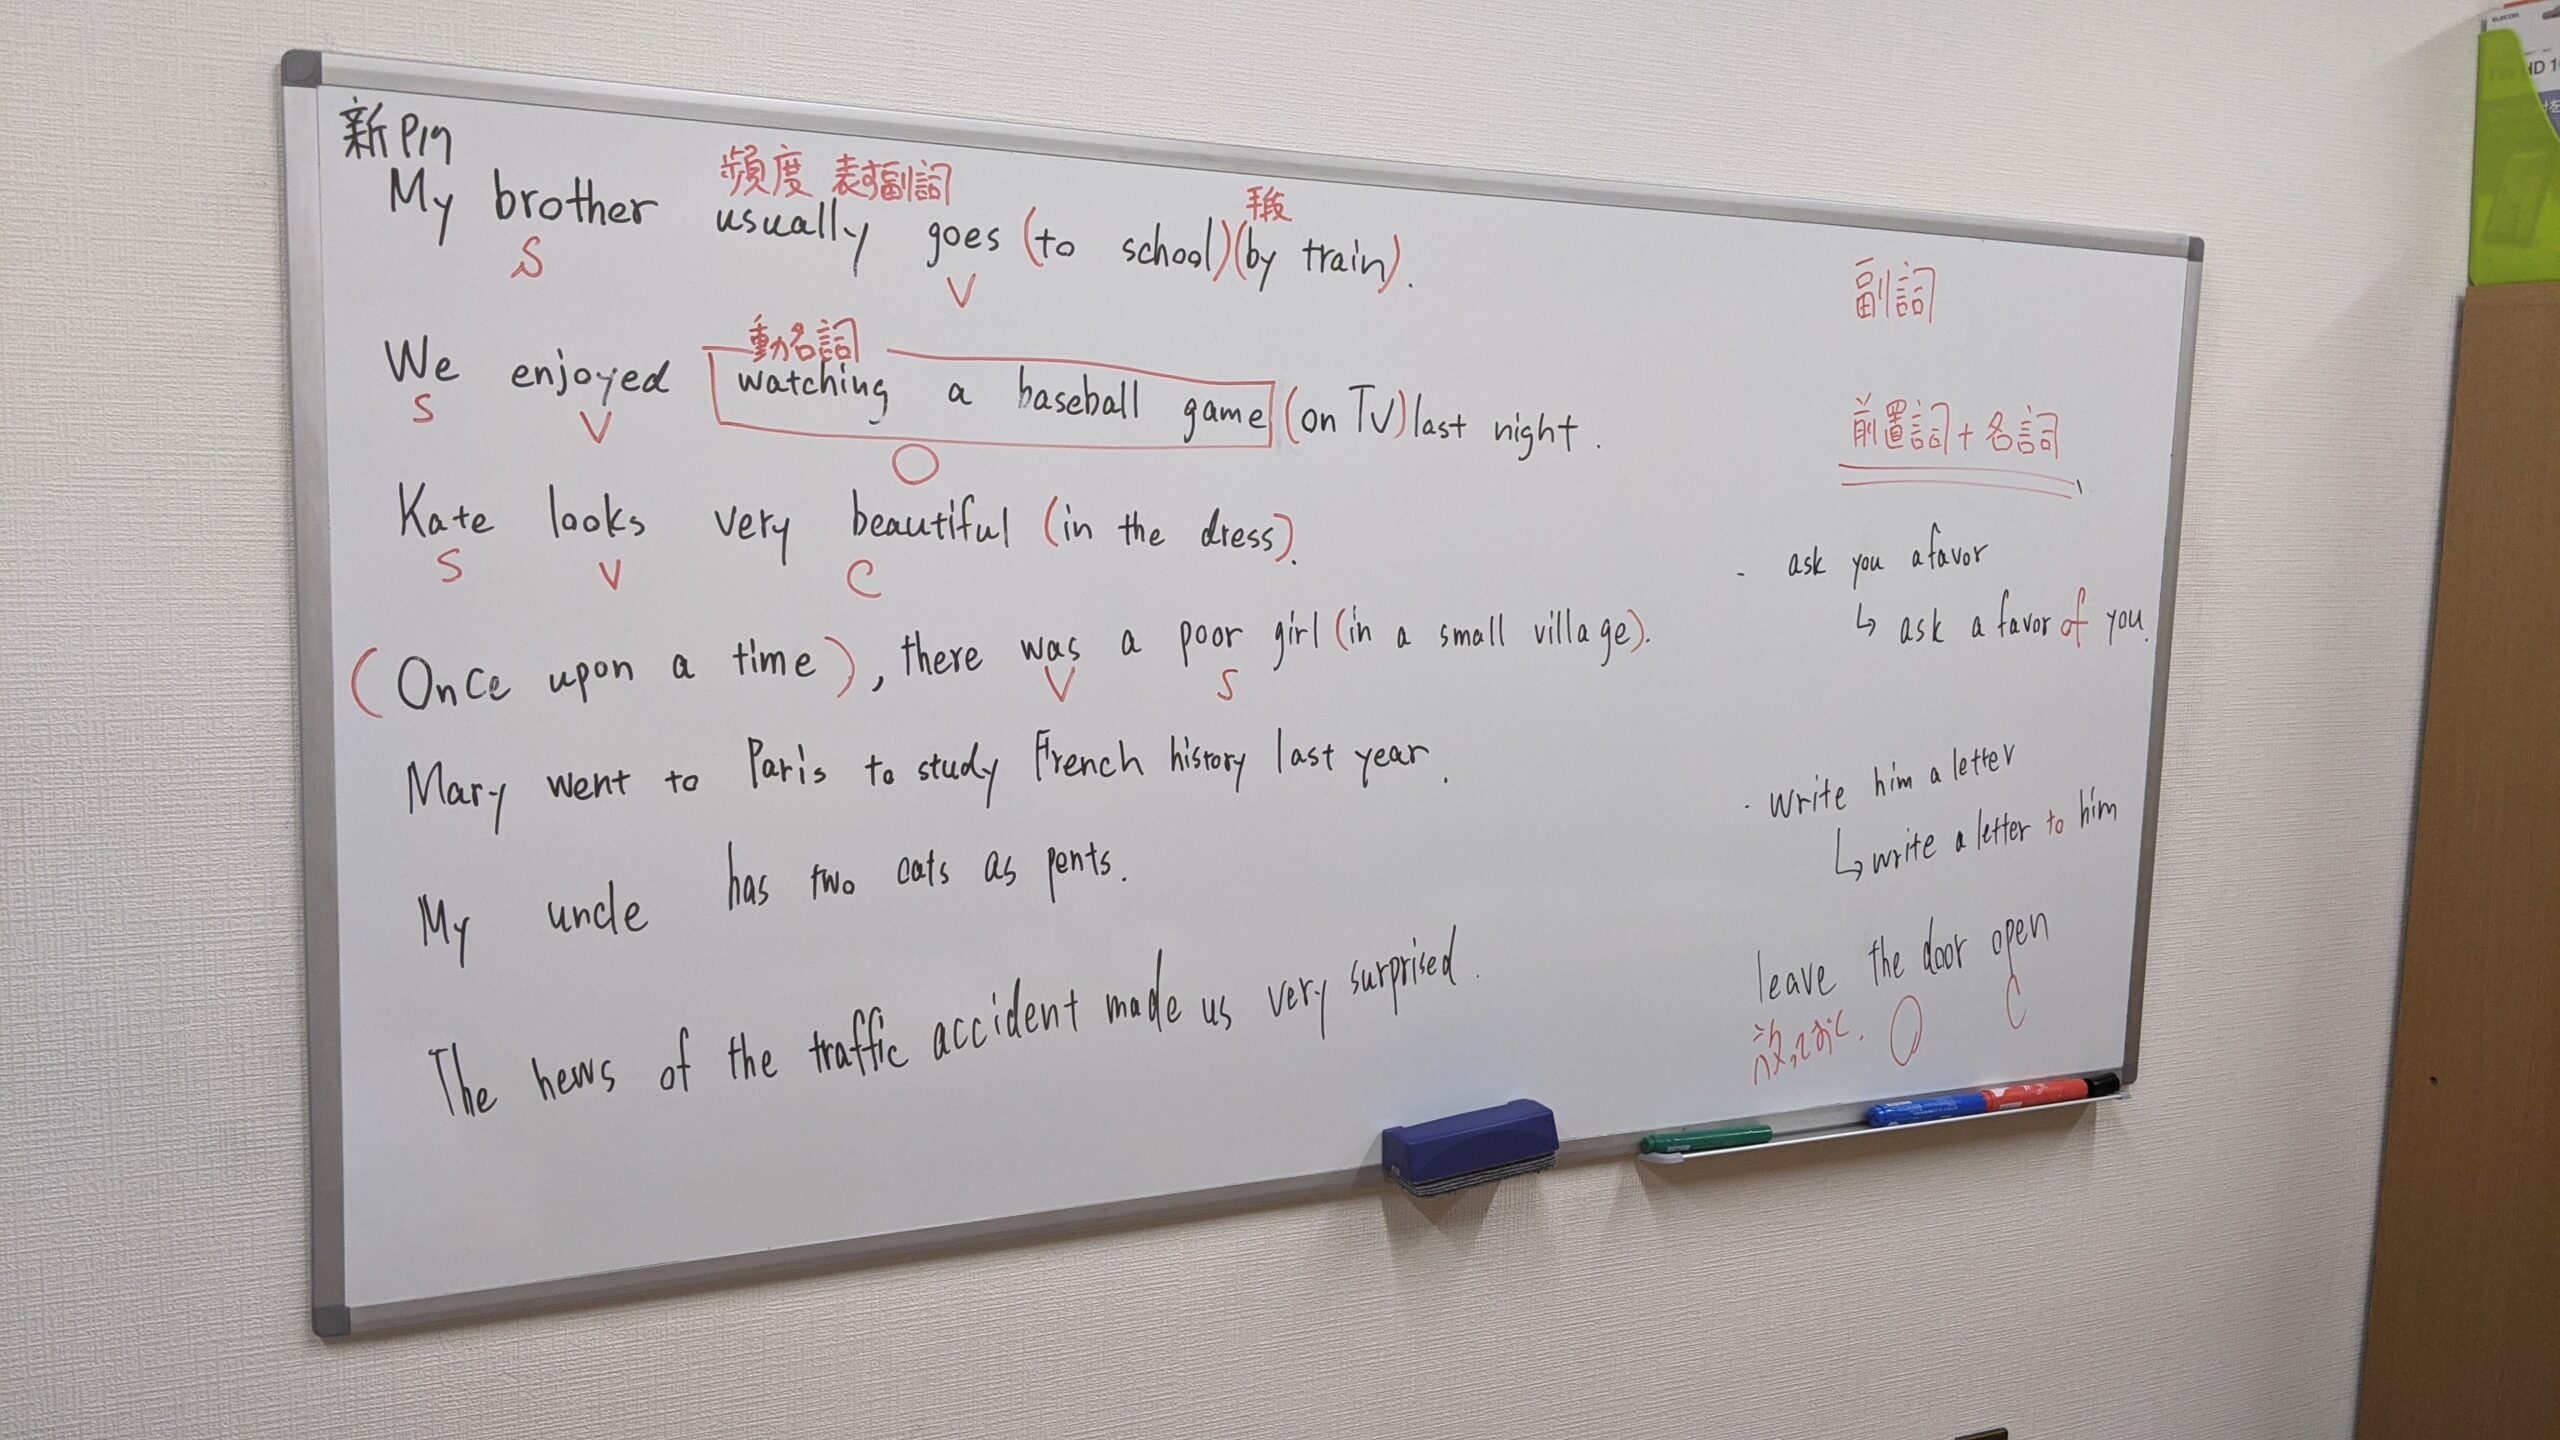 新 P19
頻度 表す副詞
手段
My brother usually goes (to school)(by train).
S V
動名詞
We enjoyed watching a baseball game (on TV) last night.
S V O
Kate looks very beautiful (in the dress).
S V C
(Once upon a time), there was a poor girl (in a small village).
V S
Mary went to Paris to study French history last year.
My uncle has two cats as pents.
The news of the traffic accident made us very surprised.
副詞
前置詞+名詞
・ask you a favor
↳ ask a favor of you.
・write him a letter
↳ write a letter to him
leave the door open
O C
ELECOM
HD 10